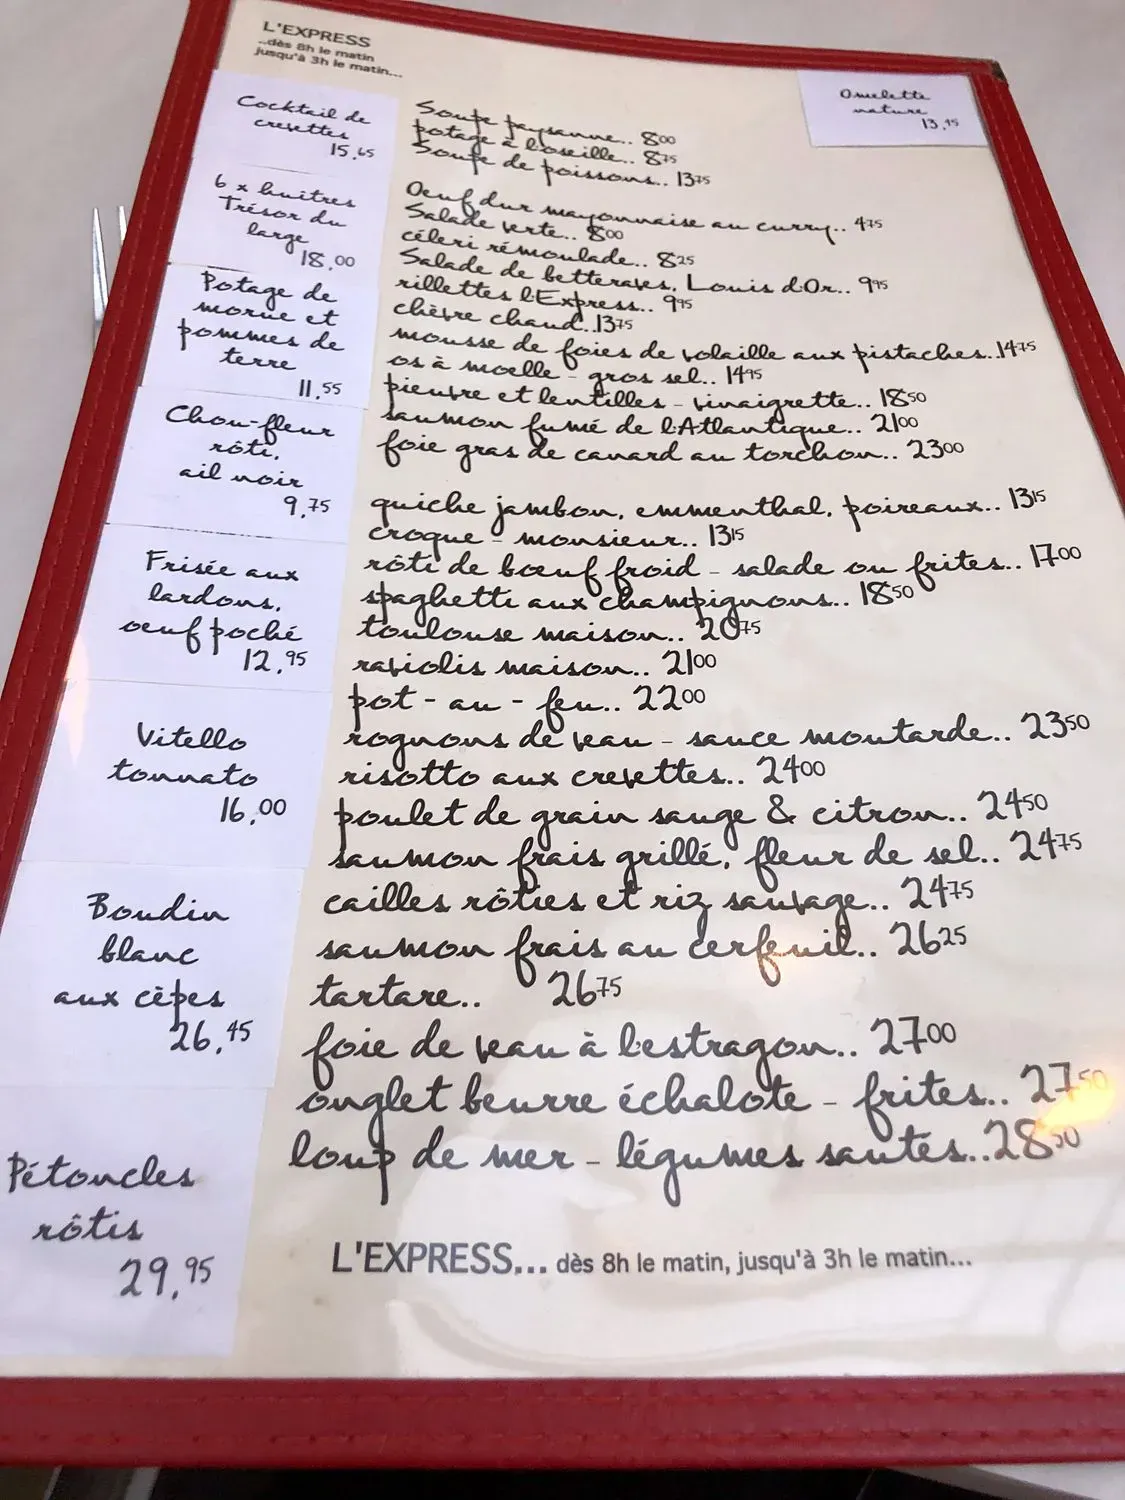 L'EXPRESS
..dès 8h le matin
jusqu'à 3h le matin...
Cocktail de
crevettes
15,65
6 x huîtres
Trésor du
large
18,00
Potage de
morue et
pommes de
terre
11,55
Chou-fleur
rôti,
ail noir
9,75
Frisée aux
lardons,
oeuf poché
12,95
Vitello
tonnato
16,00
Boudin
blanc
aux cèpes
26,45
Pétoncles
rôtis
29,95
Omelette
nature
13,95
Soupe paysanne.. 800
potage à l'oseille.. 875
Soupe de poissons.. 1375
Oeuf dur mayonnaise au curry.. 475
Salade verte.. 800
céleri rémoulade.. 825
Salade de betteraves, Louis d'Or.. 995
rillettes l'Express.. 995
chèvre chaud..1375
mousse de foies de volaille aux pistaches..1475
os à moelle - gros sel.. 1495
pieuvre et lentilles - vinaigrette.. 1850
saumon fumé de l'Atlantique.. 2100
foie gras de canard au torchon.. 2300
quiche jambon, emmenthal, poireaux.. 1315
croque - monsieur.. 1315
rôti de boeuf froid - salade ou frites.. 1700
spaghetti aux champignons.. 1850
toulouse maison.. 2075
raviolis maison.. 2100
pot - au - feu.. 2200
rognons de veau - sauce moutarde.. 2350
risotto aux crevettes.. 2400
poulet de grain sauge & citron.. 2450
saumon frais grillé, fleur de sel.. 2475
cailles rôties et riz sauvage.. 2475
saumon frais au cerfeuil.. 2625
tartare.. 2675
foie de veau à l'estragon.. 2700
onglet beurre échalote - frites.. 2750
loup de mer - légumes sautés..2850
L'EXPRESS... dès 8h le matin, jusqu'à 3h le matin...